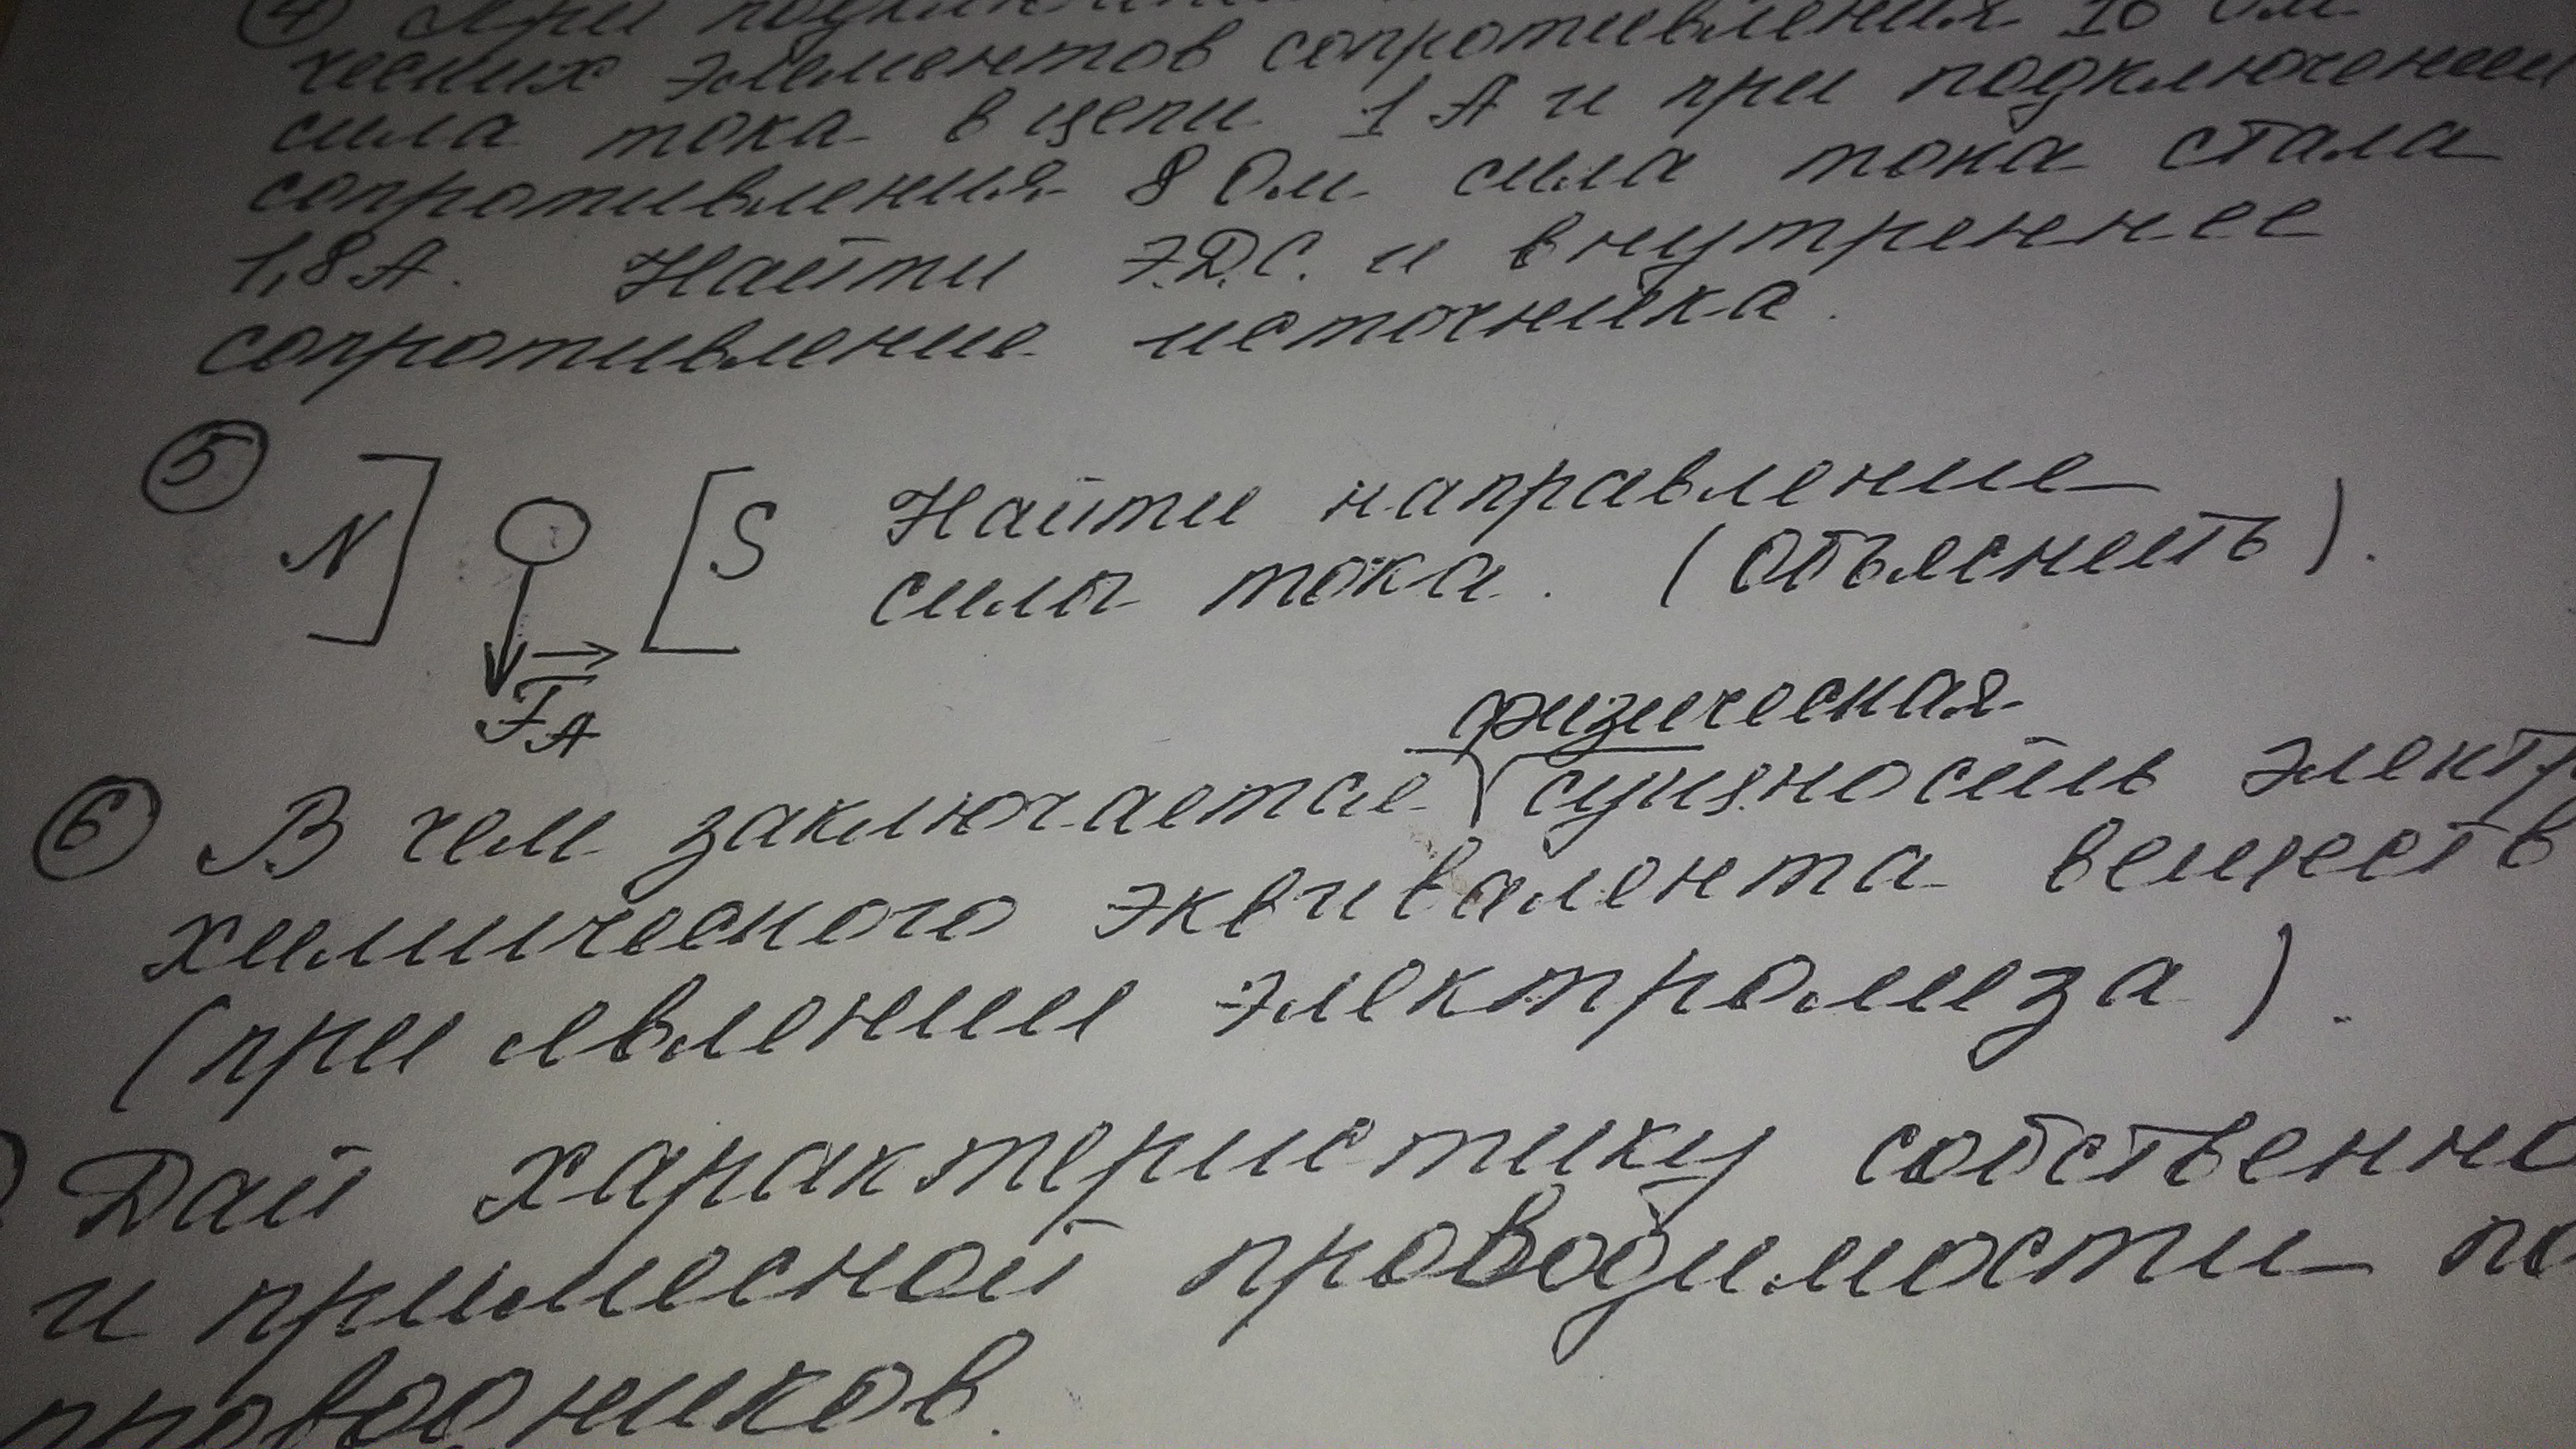 ④ При
ческих элементов сопротивления 10 Ом
сила тока в цепи 1 А и при подключении
сопротивления 8 Ом сила тока стала
1,8 А. Найти Э.Д.С. и внутреннее
сопротивление источника.
⑤ N S Найти направление
силы тока. (Объяснить).
F_A
физическая
⑥ В чем заключается сущность электр
химического эквивалента веществ
(при явлении электролиза).
Дай характеристику собственно
и примесной проводимости по
проводников.